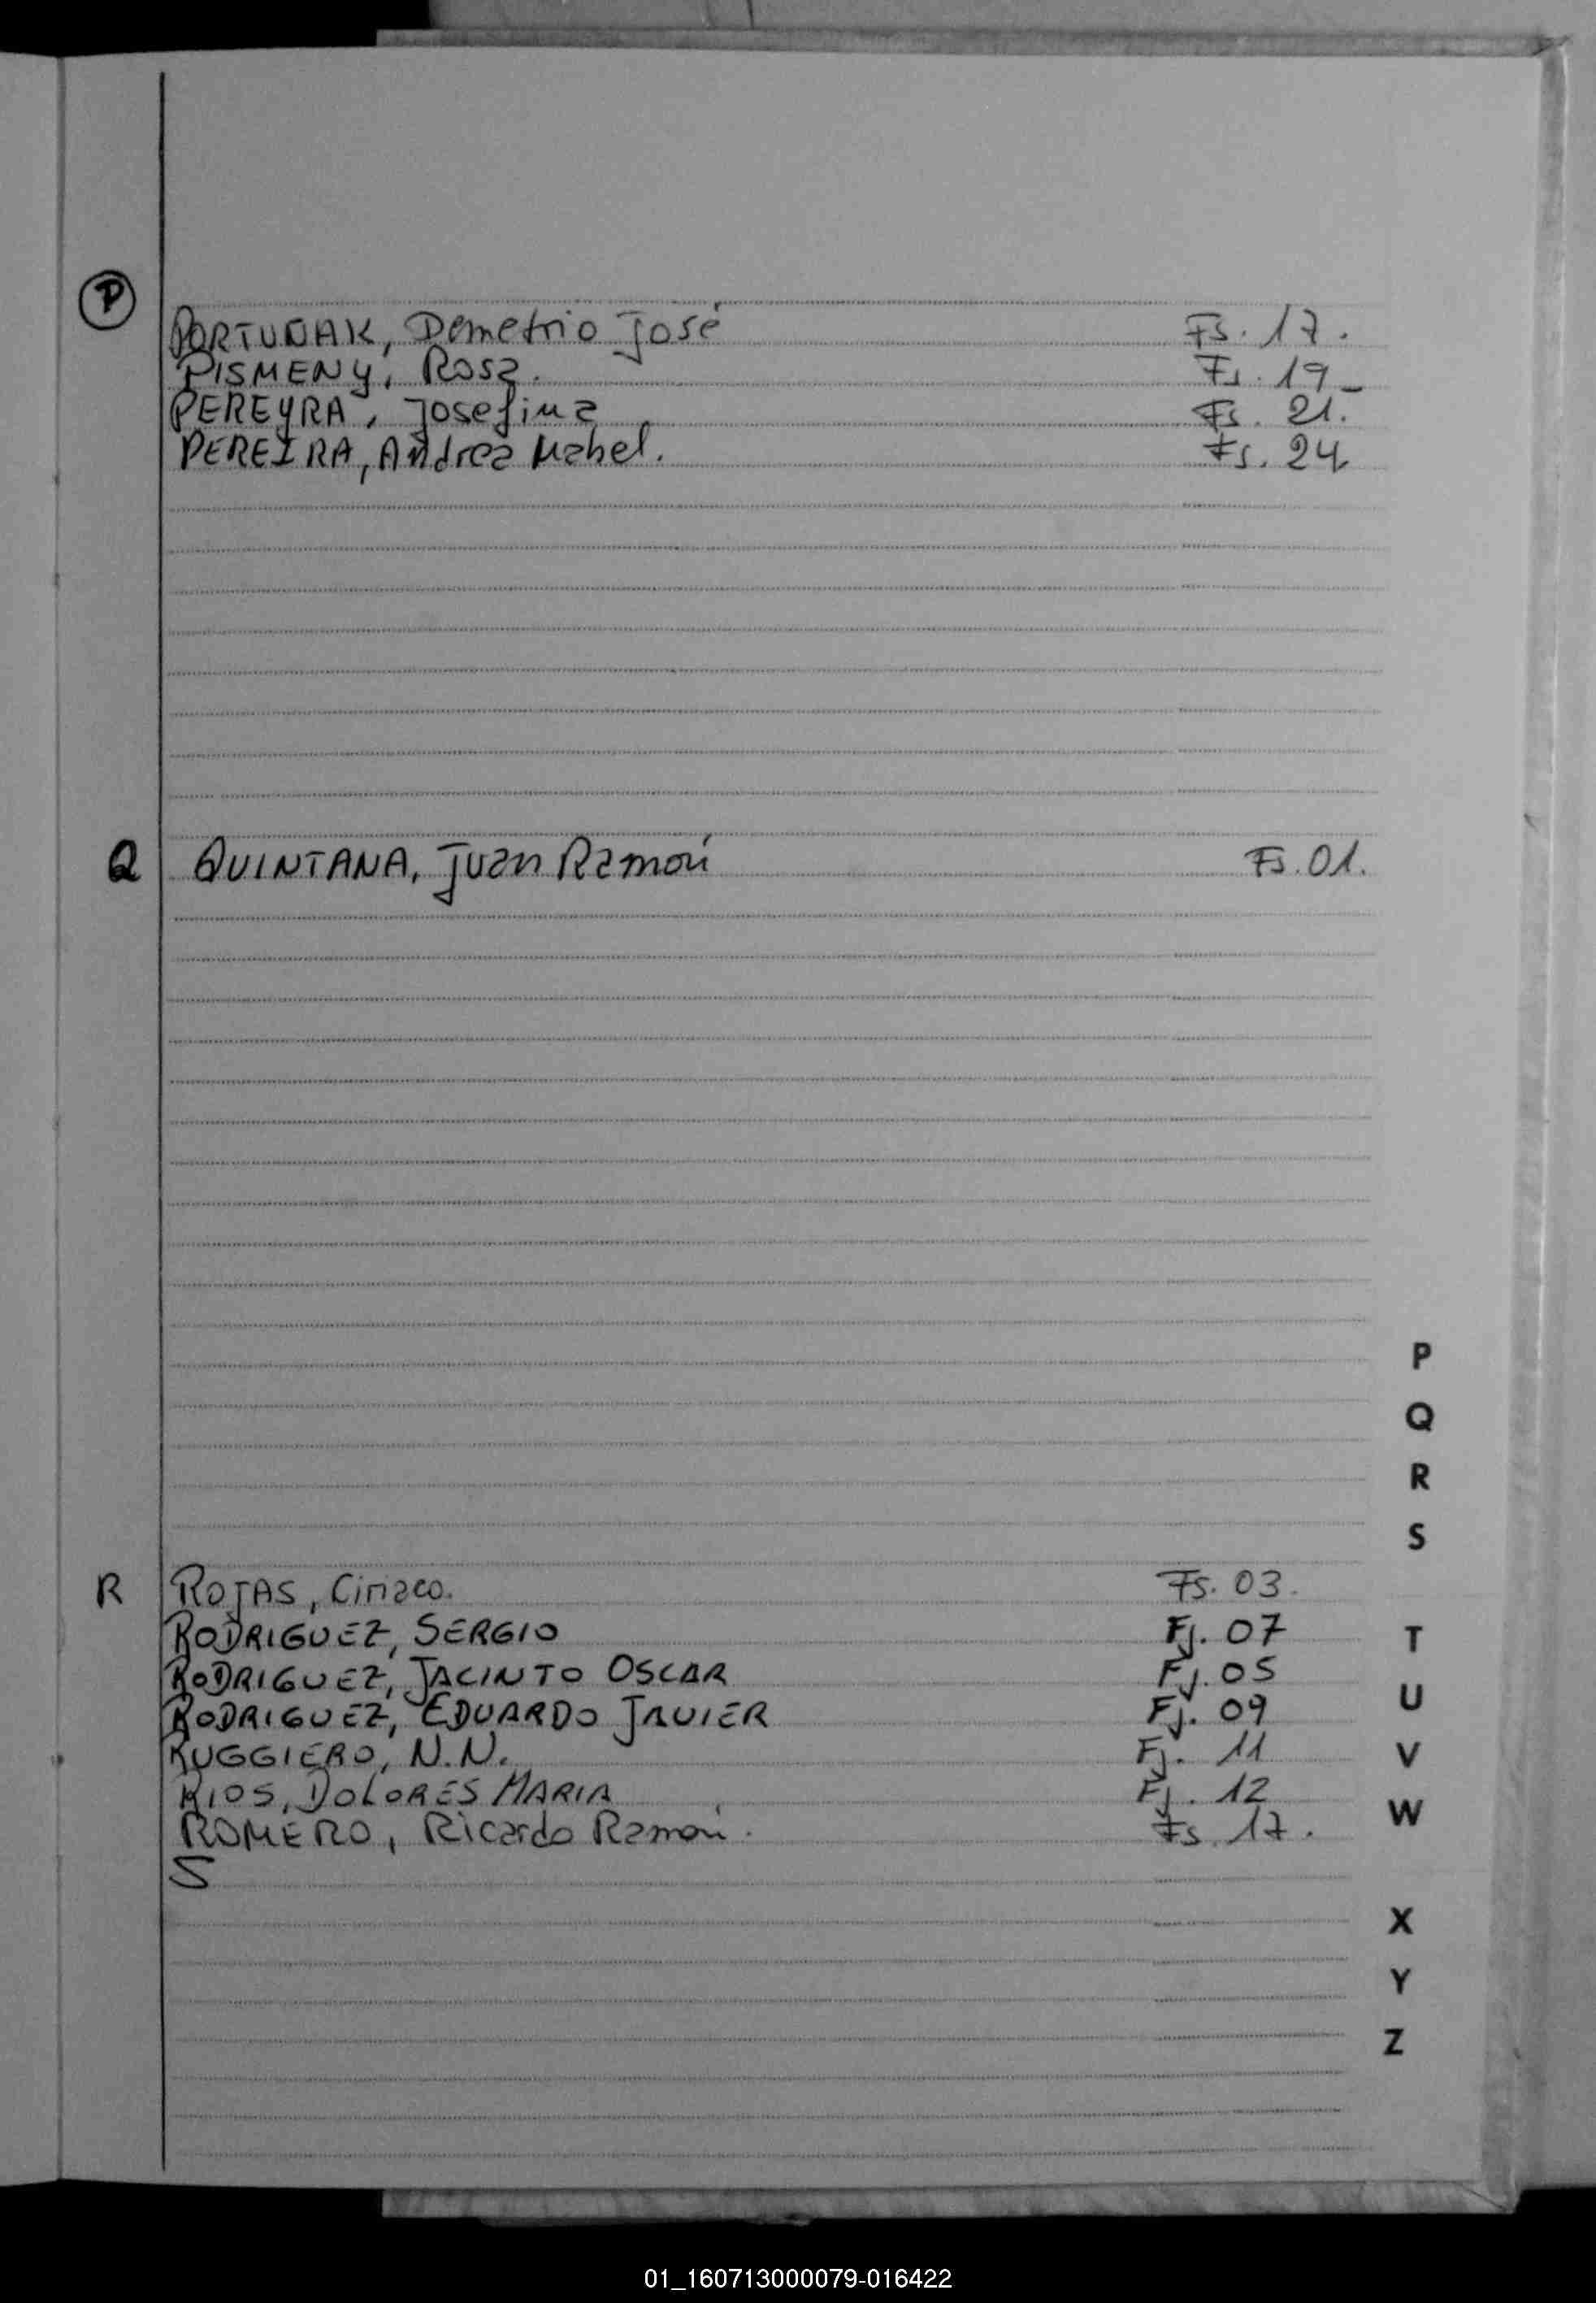 P
PORTUNAK, Demetrio José Fs. 17.
PISMENY, Rosa. Fs. 19_
PEREYRA, Josefina Fs. 21.
PEREIRA, Andrea Mabel. Fs. 24
Q QUINTANA, Juan Ramón Fs. 01.
R ROJAS, Ciriaco. Fs. 03.
RODRIGUEZ, SERGIO Fj. 07
RODRIGUEZ, JACINTO OSCAR Fj. 05
RODRIGUEZ, EDUARDO JAVIER Fj. 09
RUGGIERO, N.N. Fj. 11
RIOS, DOLORES MARIA Fj. 12
ROMERO, Ricardo Ramón. Fs. 17.
S
P
Q
R
S
T
U
V
W
X
Y
Z
01_160713000079-016422